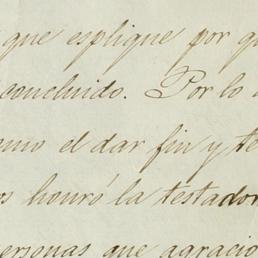 que esplique por q
concluido. Por lo
omo el dar fin y te
os honró la testador
personas que agracio